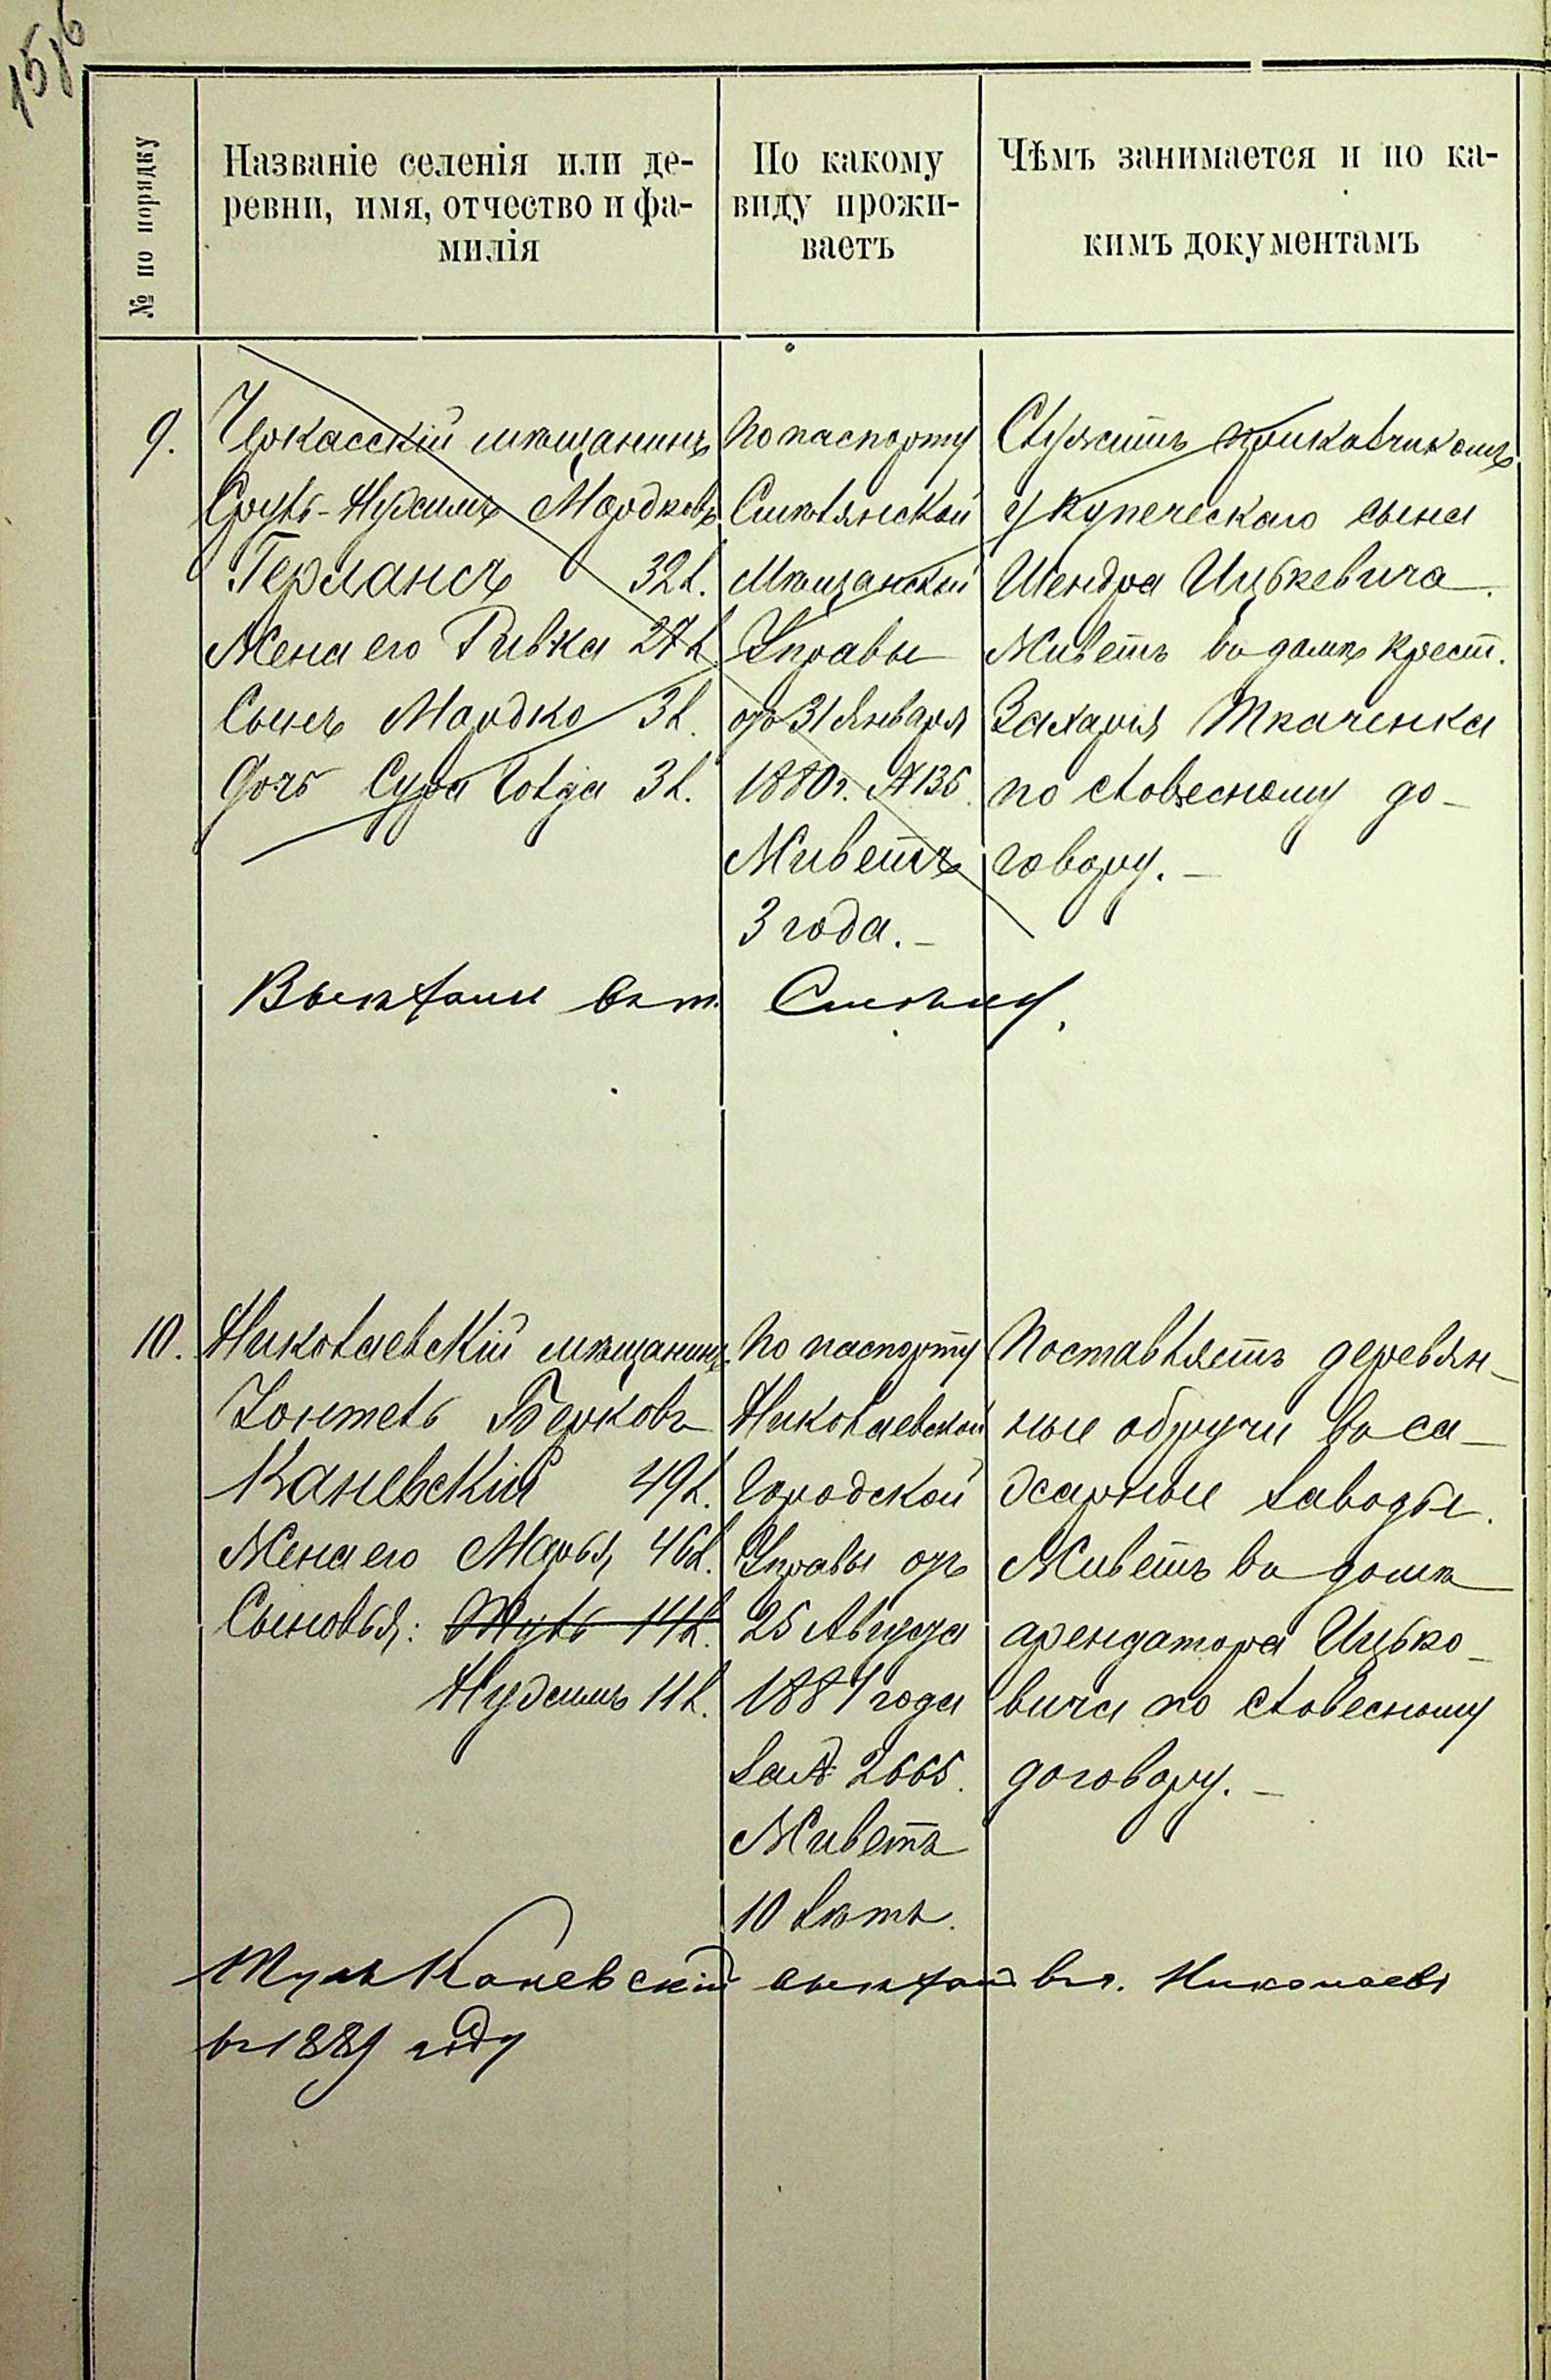 15/6
№ по порядку
Названіе селенія или де-
ревни, имя, отчество и фа-
милія
По какому
виду прожи-
ваетъ
Чѣмъ занимается и по ка-
кимъ документамъ
9.
Черкасскій мѣщанинъ
Сруль-Нухимъ Мордковъ
Германсъ 32 л.
Жена его Ривка 27 л.
Сынъ Мордко 3 л.
Дочь Сура Голда 3 л.
По паспорту
Смѣлянской
Мѣщанской
Управы
отъ 31 Января
1880 г. № 135.
Живетъ
3 года.–
Служитъ прикащикомъ
у купеческаго сына
Шендра Ицькевича.
Живетъ въ домѣ крест.
Захарія Ткаченка
по словесному до-
говору.–
Выѣхали въ м. Смѣлу.
10.
Николаевскій мѣщанинъ
Зонтель Берковъ
Каневскій 49 л.
Жена его Марья 46 л.
Сыновья: Шуль 14 л.
Нухимъ 11 л.
По паспорту
Николаевской
Городской
Управы отъ
25 Августа
1881 года
за № 2665.
Живетъ
10 лѣтъ.
Поставляетъ деревян-
ные обручи въ са-
харные заводы.
Живетъ въ домѣ
арендатора Ицько-
вича по словесному
договору.–
Шуль Каневскій выѣхалъ въ г. Николаевъ
въ 1889 году